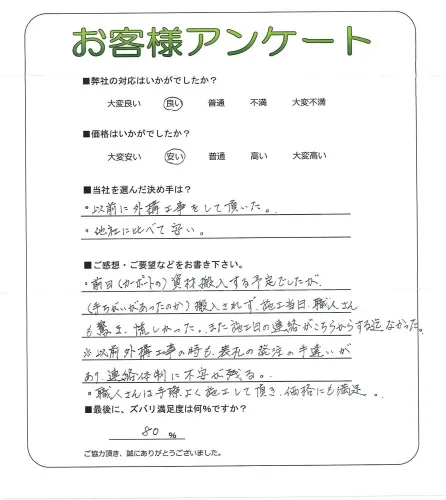 お客様アンケート
■弊社の対応はいかがでしたか？
大変良い 良い 普通 不満 大変不満
■価格はいかがでしたか？
大変安い 安い 普通 高い 大変高い
■当社を選んだ決め手は？
・以前に外構工事をして頂いた。
・他社に比べて安い。
■ご感想・ご要望などをお書き下さい。
・前日(カーポートの)資材搬入する予定でしたが、
(手ちがいがあったのか)搬入されず、施工当日、職人さん
も驚き、慌しかった。また施工日の連絡がこちらからする迄なかった。
※以前外構工事の時も、表札の発注の手違いが
あり、連絡体制に不安が残る。
・職人さんは手際よく施工して頂き、価格にも満足。
■最後に、ズバリ満足度は何%ですか？
80 %
ご協力頂き、誠にありがとうございました。